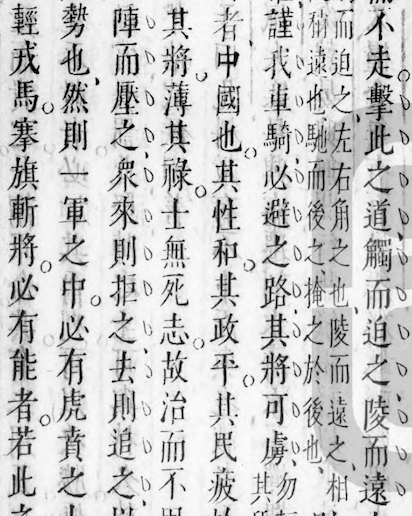 不走擊此之道觸而迫之陵而遠
而迫之左右角之也陵而遠之相
猜遠也馳而後之掩之於後也
謹我車騎必避之路其將可虜勿
其
者中國也其性和其政平其民疲
其將薄其祿士無死志故治而不
陣而壓之衆來則拒之去則追之
勢也然則一軍之中必有虎賁之
輕戎馬搴旗斬將必有能者若此